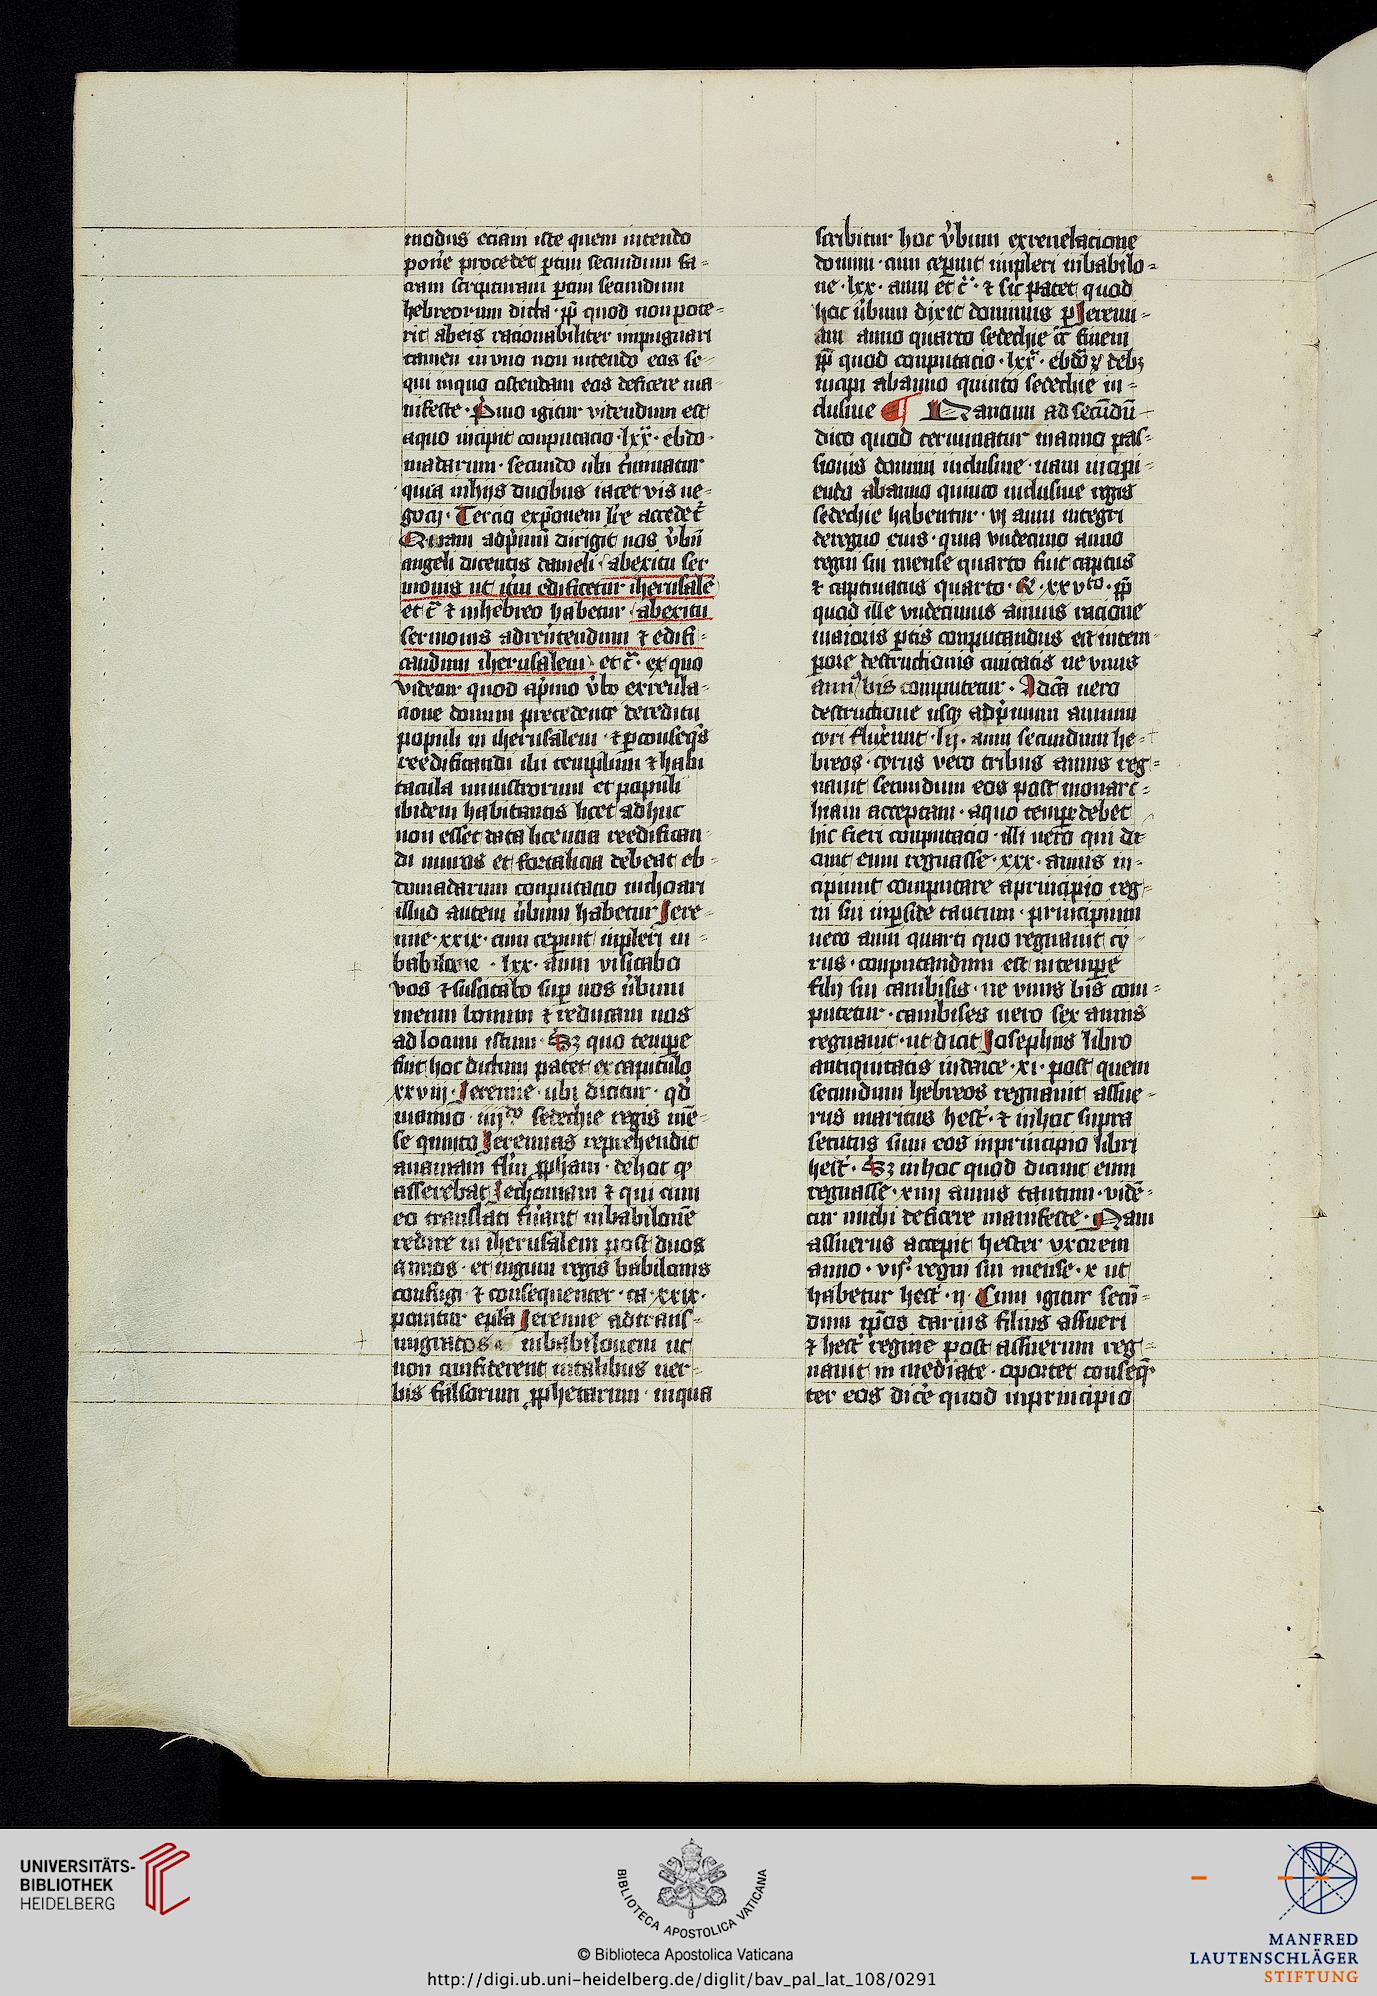 modus eciam iste quem intendo
pon̄e procedet ꝑtim secundum sa-
cram scripturam ꝑtim secundum
hebreorum dicta · ꝓpt̄ quod non pote-
rit ab eis racionabiliter impugnari
tamen in vno non intendo eos se-
qui in quo ostendam eos deficere ma-
nifeste · Pͥmo igitur videndum est
a quo incipit conputacio · lxx · ebdo-
madarum · secundo ubi t̄minatur
quia in hijs duobus iacet vis ne-
gocij · Tercio expōnem lr̄e accedet̄
Quam ad pͥmum dirigit nos v̄bū
angeli dicentis danieli · ab exitu ser
monis ut itͥm edificetur iherusalē
et c̄ ⁊ in hebreo habetur · ab exitu
sermonis ad reūtendum ⁊ edifi-
candum iherusalem et c̄ · ex quo
videtur quod a pͥmo v̄bo ex reuela-
cione domini precedente de reditu
populi in iherusalem · ⁊ ꝑ conseqn̄s
reedificandi ibi templum ⁊ habi
tacula ministrorum et populi
ibidem habitantis licet adhuc
non esset data licencia reedifican-
di muros et fortalicia debeat eb-
domadarum conputacio inchoari
illud autem v̄bum habetur Jere-
mie · xxix · cum ceperint inpleri in -
babilone · lxx · anni visitabo
vos ⁊ suscitabo suꝑ uos v̄bum
meum bonum ⁊ reducam uos
ad locum istum · Sꝫ quo tempe
fuit hoc dictum patet ex capitulo
xxviij · Jeremie · ubi dicitur · qd̄
in anno · iiijto sedechie regis mē-
se quinto Jeremias reprehendit
ananiam flm̄ ꝓpham · de hoc ꝙ
asserebat Jechoniam ⁊ qui cum
eo translati fūant in babilonē
redire in iherusalem post duos
annos · et iugum regis babilonis
confrigi ⁊ consequenter · ca · xxix ·
ponitur epl̄a Jeremie ad trans-
migratos in babilonem ut
non confiderent in talibus ver-
bis falsorum ꝓphetarum · in qua
scribitur hoc v̄bum ex reuelacione
domini · cum ceperint impleri in babilo-
ne · lxx · anni et c̄ · ⁊ sic patet quod
hoc v̄bum dixit dominus ꝑ Jeremi-
am anno quarto sedechie c̄ finem
ꝓpt̄ quod conputacio · lxx · ebdōꝝ debꝫ
incipi ab anno quinto sedechie in-
clusiue ¶ Qantum ad secūdū
dico quod terminatur in anno pas-
sionis domini inclusiue · nam incipi-
endo ab anno quinto inclusiue regis
sedechie habentur · vj anni integri
de regno eius · quia vndecimo anno
regni sui mense quarto fuit captus
⁊ captiuatus quarto · R̄ · xxvto · ꝓpt̄
quod ille vndecimus annus racione
maioris ꝑtis conputandus est in tem-
pore destructionis ciuitatis ne vnus
annꝰ bis computetur · A dc̄a uero
destructione usqꝫ ad pͥmum annum
cyri flux̄unt · lij · anni secundum he-
breos · cyrus vero tribus annis reg-
nauit secundum eos post monarc-
hiam acceptam · a quo tempe debet
hic fieri conputacio · illi uero qui di-
cunt eum regnasse · xxx · annis in-
cipiunt computare a principio reg-
ni sui in ꝑside tantum · principium
uero anni quarti quo regnauit cy-
rus · conputandum est in tempe
filij sui cambisis · ne vnus bis com-
putetur · cambises uero sex annis
regnauit · ut dicit Josephus libro
antiquitatis iudaice · xi · post quem
secundum hebreos regnauit assue-
rus maritus hest̄ · ⁊ in hoc supra
secutus sum eos in principio libri
hest̄ · Sꝫ in hoc quod dicunt eum
regnasse · xiiij annis tantum · vidē-
tur michi deficere manifeste · Nam
assuerus accepit hester vxorem
anno · vijͦ · regni sui mense · x ut
habetur hest̄ · ij · Cum igitur secū-
dum ip̄os darius filius assueri
⁊ hest̄ regine post assuerum reg-
nauit in mediate · oportet conseq̄n-
ter eos dic̄e quod in principio
UNIVERSITÄTS-
BIBLIOTHEK
HEIDELBERG
BIBLIOTECA APOSTOLICA VATICANA
© Biblioteca Apostolica Vaticana
http://digi.ub.uni-heidelberg.de/diglit/bav_pal_lat_108/0291
MANFRED
LAUTENSCHLÄGER
STIFTUNG